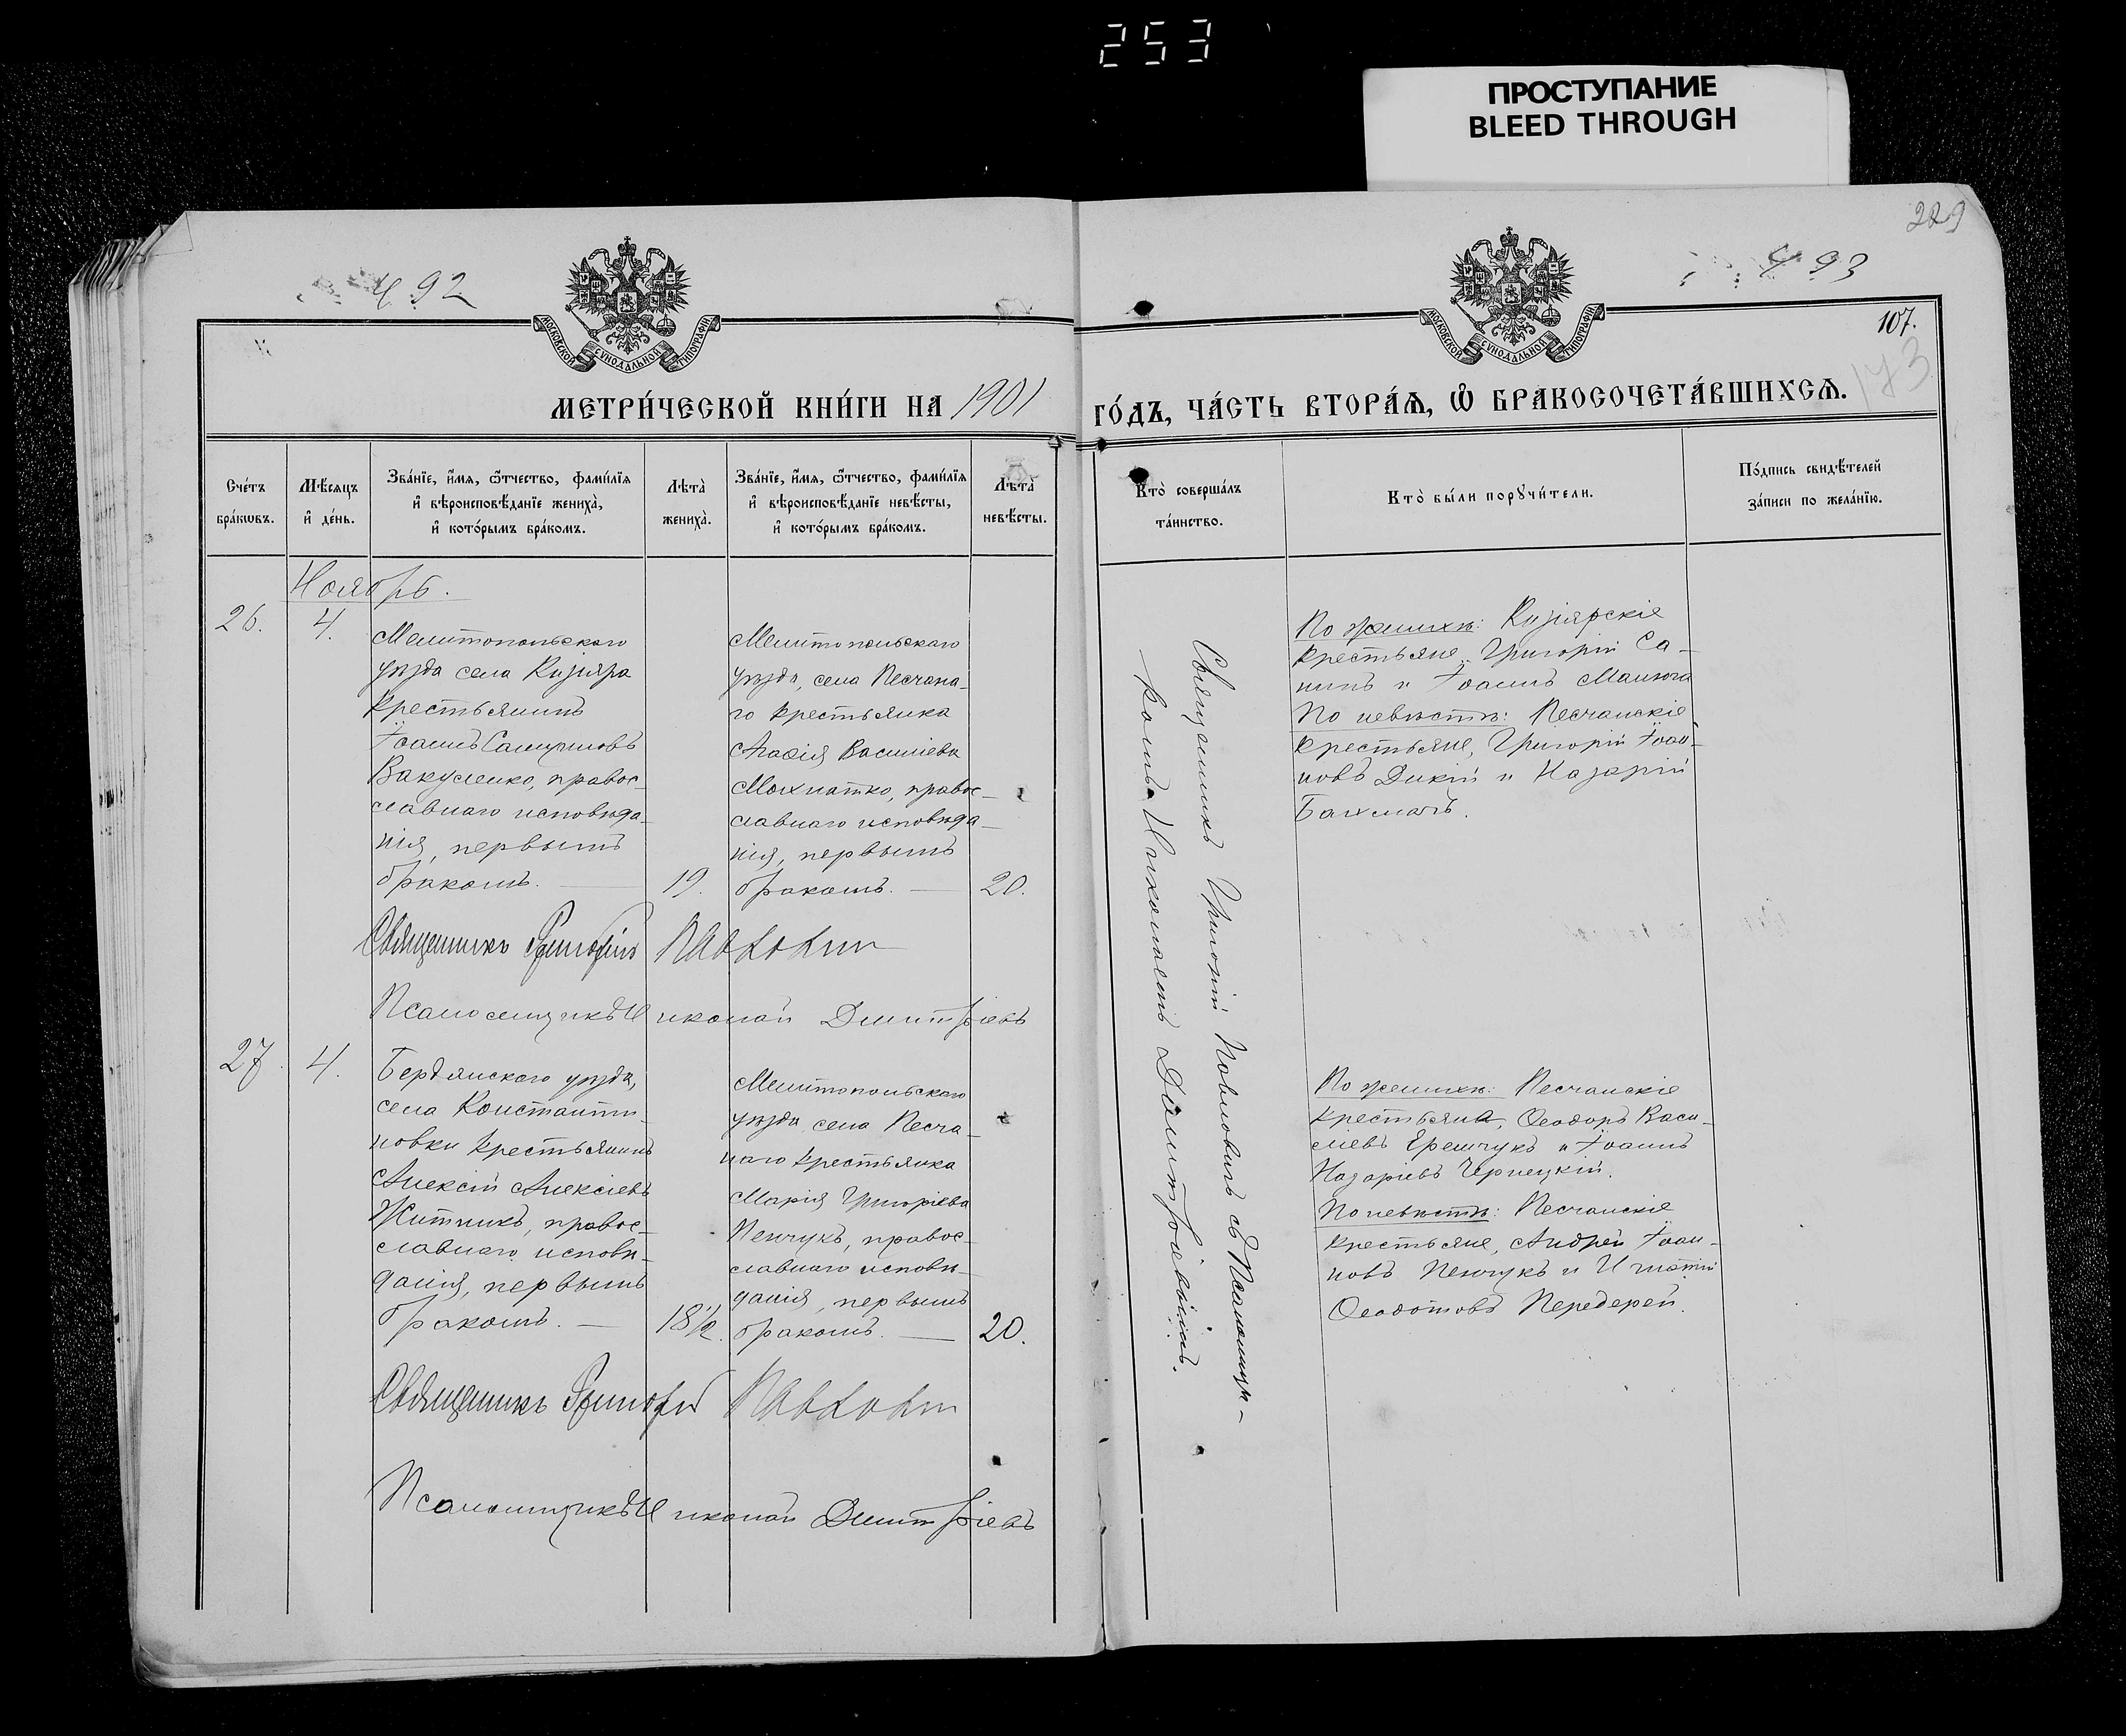 253
ПРОСТУПАНИЕ
BLEED THROUGH
229
492
493
МОСКОВСКОЙ СѴНОДАЛЬНОЙ ТИПОГРАФІИ
МОСКОВСКОЙ СѴНОДАЛЬНОЙ ТИПОГРАФІИ
107.
173
МЕТРИ́ЧЕСКОЙ КНИ́ГИ НА 1901
ГО́ДЪ, ЧА́СТЬ ВТОРА́Ѧ, Ѽ БРАКОСОЧЕТА́ВШИХСѦ.
Сче́тъ
бра́кѡвъ.
Мѣ́сяцъ
и҆ де́нь.
Зва́нїе, и҆́мѧ, ѻ҆́тчество, фами́лїѧ
и҆ вѣроисповѣ́данїе жениха̀,
и҆ кото́рымъ бра́комъ.
Лѣта̀
жениха̀.
Зва́нїе, и҆́мѧ, ѻ҆́тчество, фами́лїѧ
и҆ вѣроисповѣ́данїе невѣ́сты,
и҆ кото́рымъ бра́комъ.
Лѣта̀
невѣ́сты.
Кто̀ соверша́лъ
та́инство.
Кто̀ бы́ли порꙋчи́тели.
По́дпись свидѣ́телей
за́писи по жела́нїю.
Ноябрь.
26.
4.
Мелитопольскаго
уѣзда села Кизіяра
крестьянинъ
Іоаннъ
Вакуленко, правос-
славнаго исповѣда-
нія, первымъ
бракомъ.
19.
Мелитопольскаго
уѣзда, села Песчана-
го крестьянка
Агафія Василіева
Мохнатко, правос-
славнаго исповѣда-
нія, первымъ
бракомъ.
20.
Священникъ Григорій Павловичъ съ Псаломщи-
комъ Николаемъ Димитріевымъ.
По женихѣ: Кизіярскіе
крестьяне, Григорій Са-
нинъ и Іоаннъ
По невѣстѣ: Песчанскіе
крестьяне, Григорій Іоан-
новъ Дикій и Назарій
Бахмачъ.
Священникъ Григорій
Псаломщикъ Николай Димитріевъ
27.
4.
Бердянскаго уѣзда,
села Константи-
новки крестьянинъ
Алексій Алексіевъ
Житникъ, правос-
славнаго исповѣ-
данія, первымъ
бракомъ.
18½.
Мелитопольскаго
уѣзда села Песча-
наго крестьянка
Марія Григоріева
Пенчукъ, правос-
славнаго исповѣ-
данія, первымъ
бракомъ.
20.
По женихѣ: Песчанскіе
крестьяне, Ѳеодоръ Васи-
ліевъ Еремчукъ и Іоаннъ
Назаріевъ Чернецкій.
По невѣстѣ: Песчанскіе
крестьяне, Андрей Іоан-
новъ Пенчукъ и Игнатій
Ѳеодотовъ Передерей.
Священникъ Григорій
Псаломщикъ Николай Димитріевъ